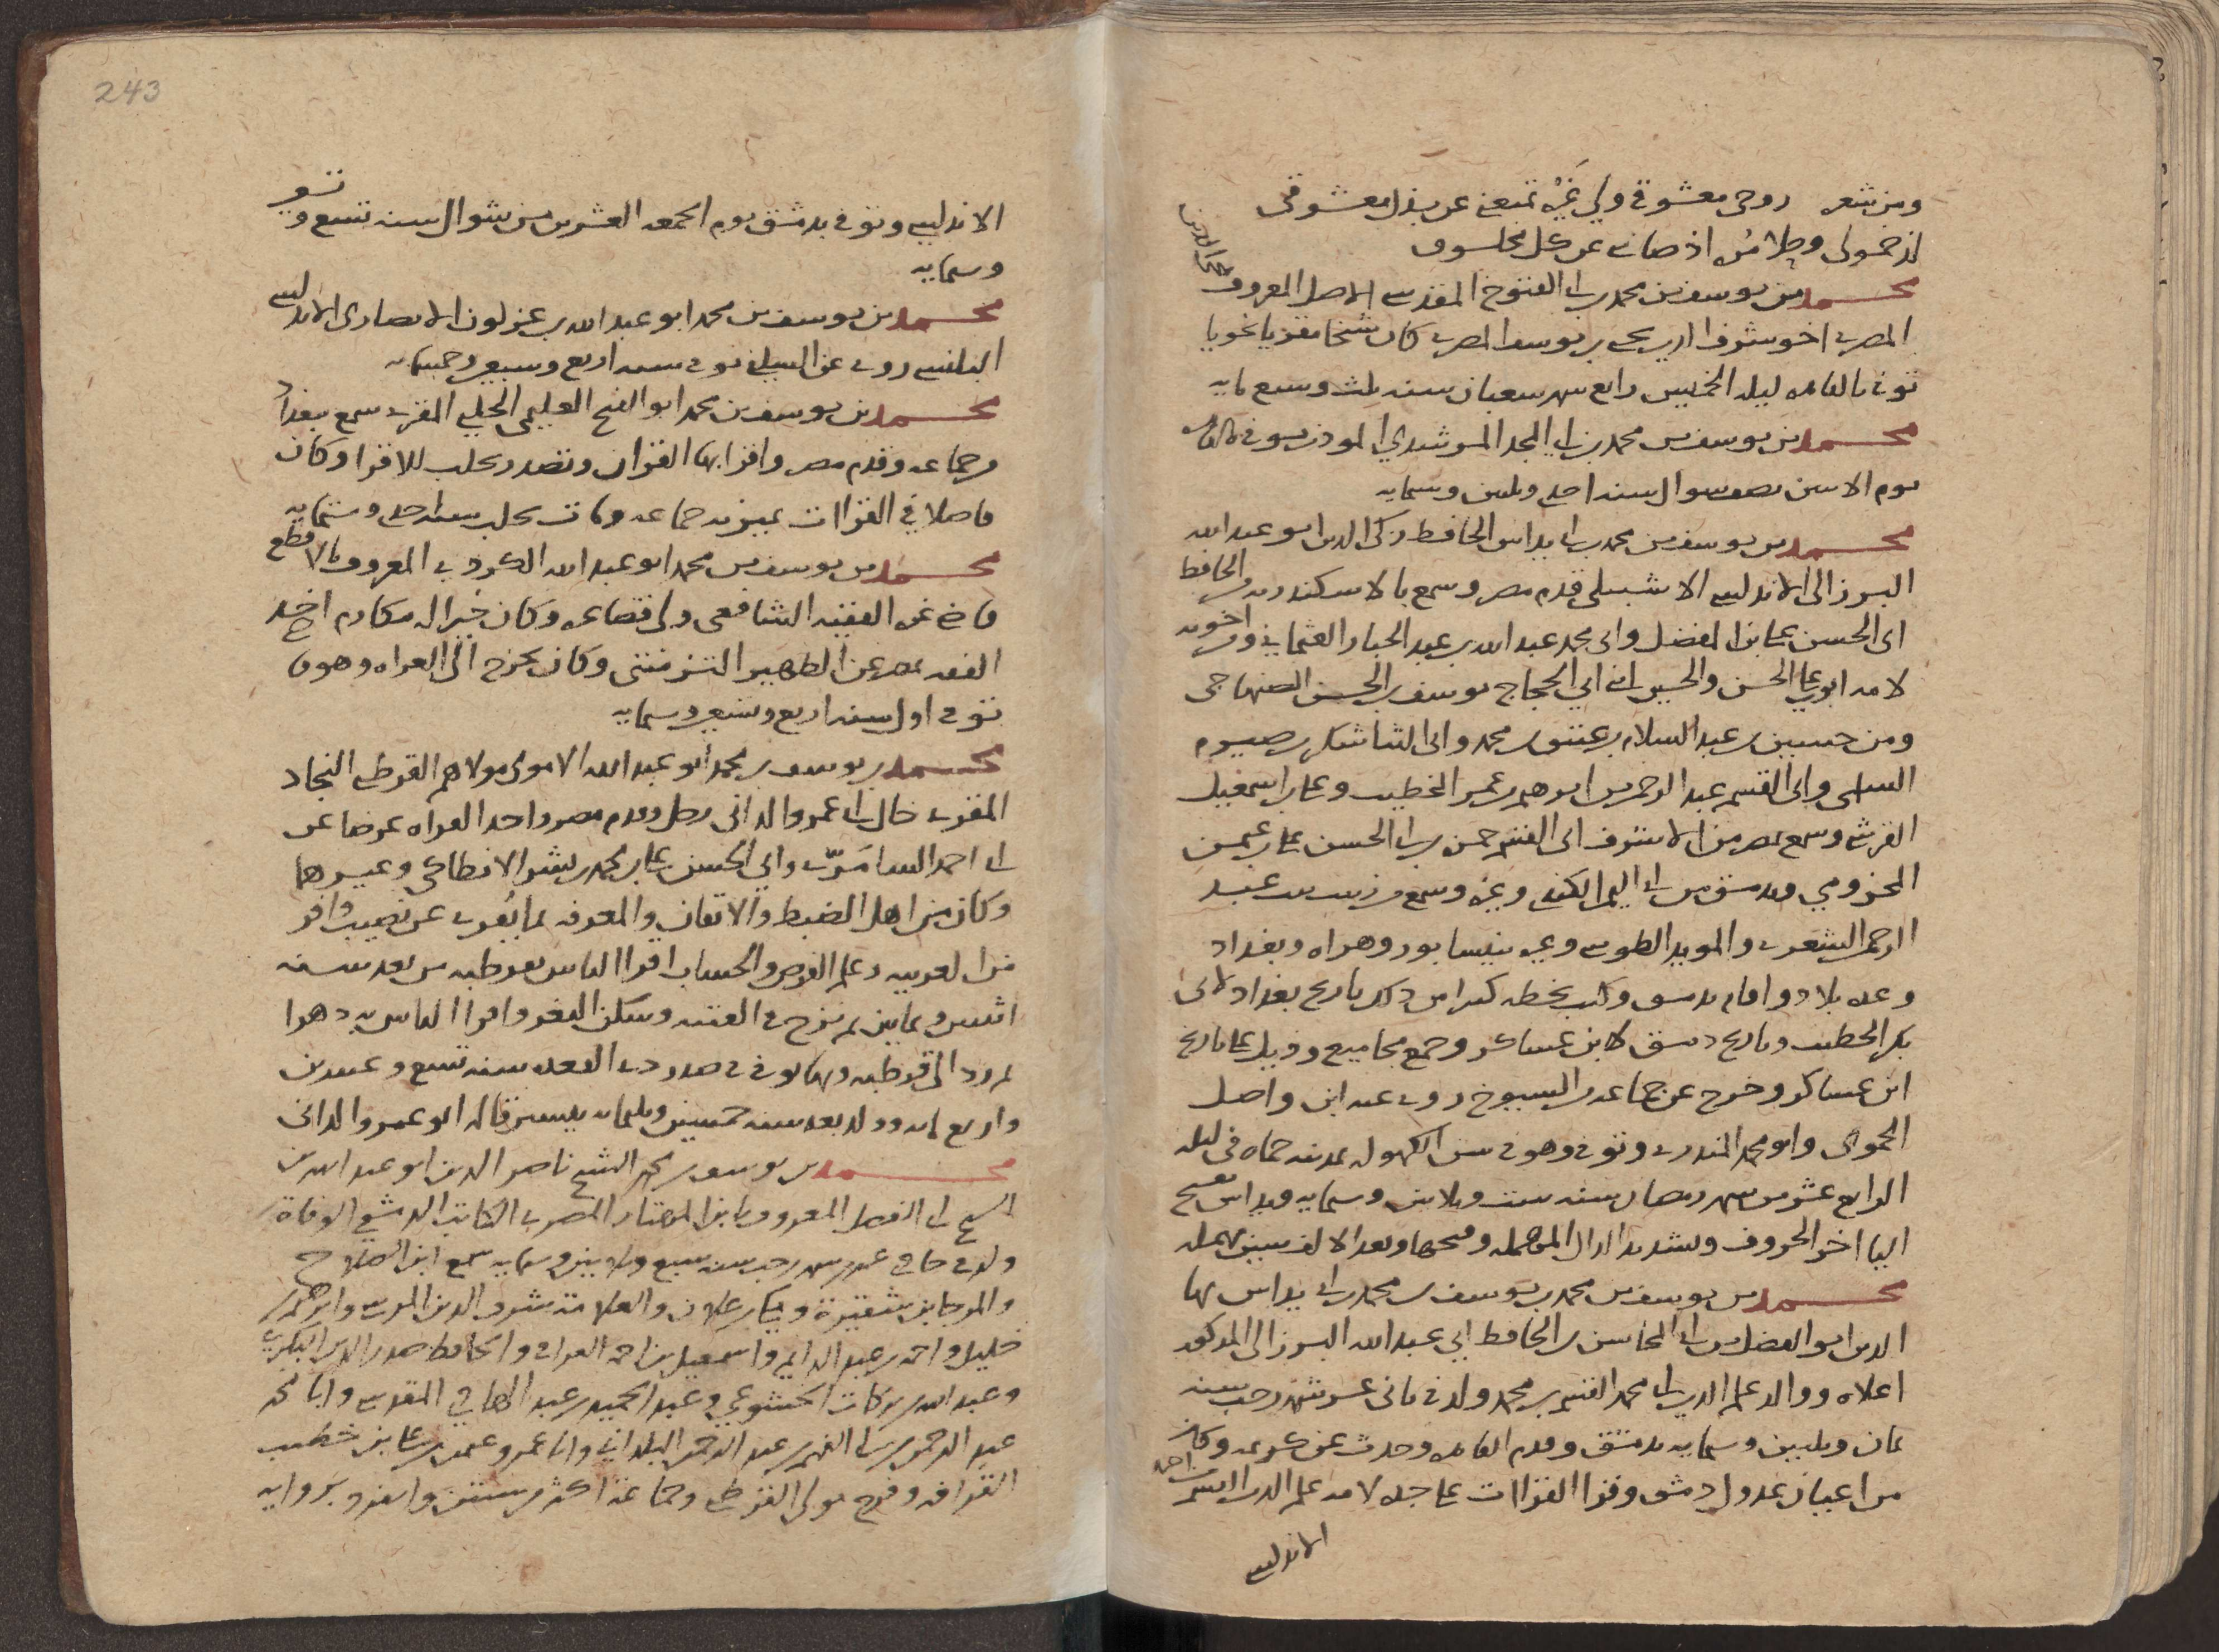 ومن شعره روحى معشوقى ولى غيرة تمنعنى عن بذل معشوقى
محمد بن يوسف بن محمد بن ابى الفتوح المقدسى الاصل المعروف
المصرى اخو شرف الدين يحيى بن يوسف المصرى كان شيخا مقريا نحويا
توفى بالقاهره ليله الخميس رابع شهر شعبان سنه ثلث وسبع مايه
محمد بن يوسف بن محمد بن ابى المجد المرشدى الموذن توفى بالقاهره
يوم الاثنين نصف شوال سنه احدى وثلثين وستمايه
محمد بن يوسف بن محمد بن ابى يداس الحافظ زكى الدين ابو عبد الله
البرزالى الاندلسى الاشبيلى قدم مصر وسمع بالاسكندريه من الحافظ
ابى الحسن على بن المفضل وابى محمد عبد الله بن عبد الجبار العثمانى ومن اخويه
لامه ابوى على الحسن والحسين ابنى ابى الحجاج يوسف بن الحسن الصنهاجى
ومن حسين بن عبد السلام بن عتيق بن محمد وابى الثنا شكر بن صبره
السلمى وابى القسم عبد الرحمن بن ابرهيم بن عمر الخطيب وعلى بن اسمعيل
القرشى وسمع بمصر من الاشرف ابى القسم حمزه بن ابى الحسن على بن عثمن
المخزومى وبدمشق من ابى اليمن الكندى وغيره وسمع من زينب بنت عبد
الرحمن الشعرى والمويد الطوسى وغيره بنيسابور وهراه وبغداد
وعده بلاد واقام بدمشق وكتب بخطه كثيرا من ذلك تاريخ بغداد لابى
بكر الخطيب وتاريخ دمشق لابن عساكر وجمع مجاميع وذيل على تاريخ
ابن عساكر وخرج عن جماعه من الشيوخ روى عنه ابن واصل
الحموى وابو محمد المنذرى وتوفى وهو فى سن الكهوله بمدينه حماه فى ليله
الرابع عشر من شهر رمضان سنه ست وثلاثين وستمايه ويداس بفتح
اليا اخر الحروف وتشديد الدال المهمله وفتحها وبعد الالف سين مهمله
محمد بن يوسف بن محمد بن يوسف بن محمد بن ابى يداس بها
الدين ابو الفضل بن ابى المحاسن بن الحافظ ابى عبد الله البرزالى المذكور
اعلاه ووالد علم الدين ابى محمد القسم بن محمد ولد فى ثانى عشر شهر رجب سنه
ثمان وثلثين وستمايه بدمشق وقدم القاهره وحدث عن كريمه وكان
من اعيان عدول دمشق وقرا القراات على جده لامه علم الدين القسم بن احمد
الاندلسى
243
الاندلسى وتوفى بدمشق يوم الجمعه العشرين من شوال سنه تسع وتسعين
وستمايه
محمد بن يوسف بن محمد ابو عبد الله بن عبزلون الانصارى الاندلسى
البلنسى روى عن السلفى توفى سنه اربع وسبعين وخمسمايه
محمد بن يوسف بن محمد ابو الفتح العليمى الحلبى المقرى سمع ببغداد
وجماعه وقدم مصر واقرا بها القران وتصدر بحلب للاقرا وكان
فاضلا فى القراات تميز به جماعه ومات بحلب سنه احدى وستمايه
محمد بن يوسف بن محمد ابو عبد الله الكردى المعروف بالاقطع
قاضى غزه الفقيه الشافعى ولى قضا غزه وكان خيرا له مكارم اخذ
الفقه بمصر عن الظهير التزمنتى وكان يخرج الى الغزاه وهو
توفى اول سنه اربع وتسعين وستمايه
محمد بن يوسف بن محمد ابو عبد الله الاموى مولاهم القرطبى النجاد
المقرى خال ابى عمرو الدانى رحل وقدم مصر واخذ القراه عرضا عن
ابى احمد السامرى وابى الحسن على بن محمد بن بشر الانطاكى وغيرهما
وكان من اهل الضبط والاتقان والمعرفه بما يقرى عن نصيب وافر
من العربيه وعلم الفرض والحساب اقرا الناس بقرطبه من بعد سنه
اثنين وثمانين ثم نزح فى الفتنه وسكن الثغر واقرا الناس به دهرا
ثم رد الى قرطبه وبها توفى فى صدر ذى القعده سنه تسع وعشرين
واربع مايه وولد بعد سنه خمسين وثلثمايه بيسير قاله ابو عمرو الدانى
محمد بن يوسف بن محمد الشيخ ناصر الدين ابو عبد الله بن
الشيخ ابى الفضل المعروف بابن المهتار المصرى الكاتب الدمشقى الوفاة
ولد فى حادى عشر شهر رجب سنه سبع وثلاثين وستمايه سمع ابن الصلاح
والمرجا بن شقيرة ومكى بن علان والعلامة شرف الدين المرسى وابرهيم بن
خليل واحمد بن عبد الدايم واسمعيل بن احمد العراقى والحافظ صدر الدين البكرى
وعبد الله بن بركات الخشوعى وعبد الحميد بن عبد الهادى المقدسى وابا محمد
عبد الرحمن بن ابى الفهم بن عبد الرحمن البلدانى وابا عمرو عثمن بن على بن خطيب
القرافه وفرج مولى القرطبى وجماعة اكثر من ستين وانفرد بروايه